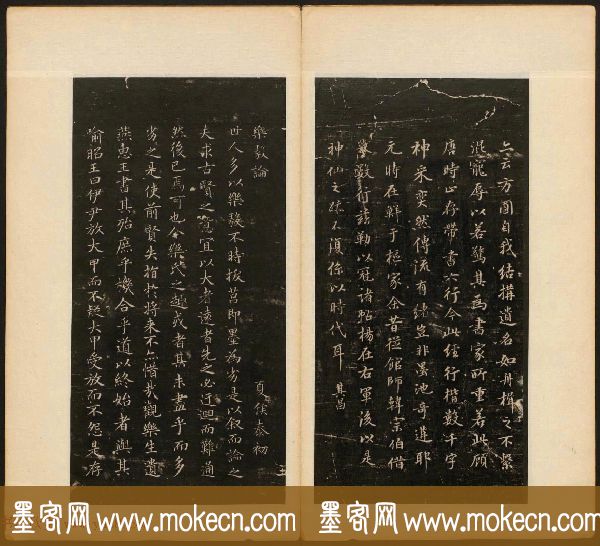 亦云方圓自我結搆遺名如舟楫之不繫
混寵辱以若驚其為書家所重若此顧
唐時止存帶書六行今此經行楷數千字
神采奕然傳流有緒豈非墨池奇遘耶
元時在鮮于樞家余昔從館師韓宗伯借
摹數行茲勒以冠諸帖楊在右軍後以是
神仙之跡不復係以時代耳 其昌
樂毅論 夏侯泰初
世人多以樂毅不時拔莒即墨為劣是以叙而論之
夫求古賢之意宜以大者遠者先之必迂迴而難通
然後已焉可也今樂氏之趣或者其未盡乎而多
劣之是使前賢失指於將來不亦惜哉觀樂生遺
燕惠王書其殆庶乎機合乎道以終始者與其
喻昭王曰伊尹放大甲而不疑大甲受放而不怨是存
墨客网 www.mokecn.com 墨客网 www.mokecn.com